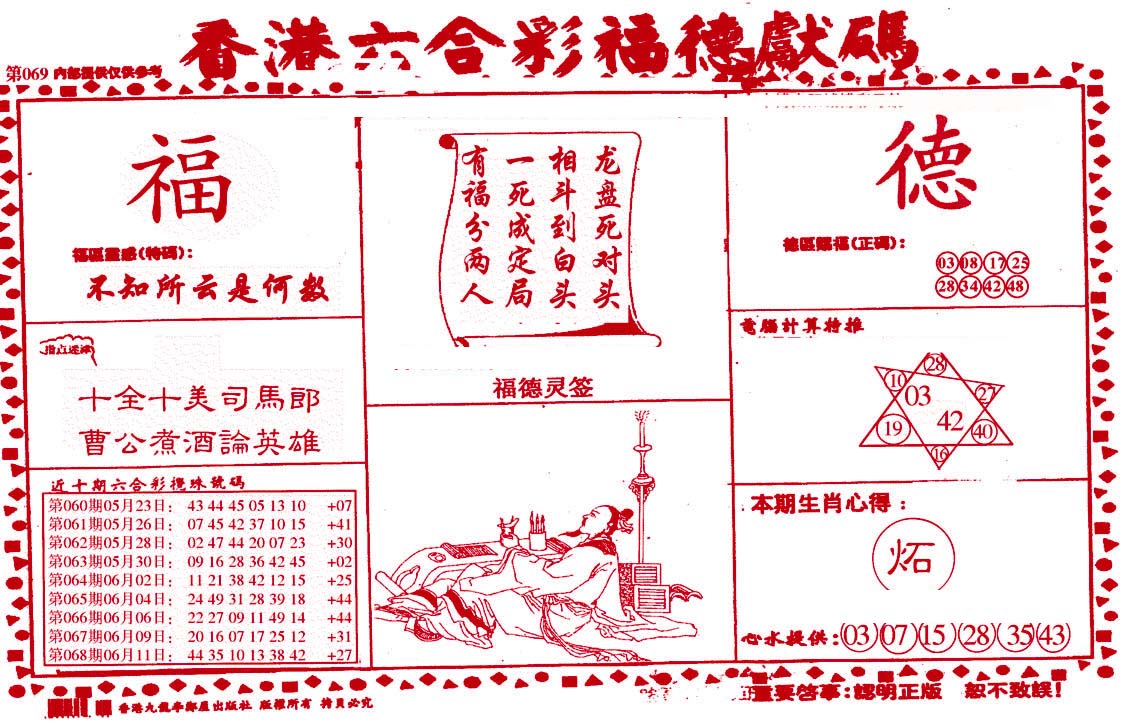 香港六合彩福德獻碼
第069 内部提供仅供参考
福
福區靈感(特碼):
不知所云是何数
指点迷津
十全十美司馬郎
曹公煮酒論英雄
近十期六合彩攪珠號碼
第060期05月23日: 43 44 45 05 13 10 +07
第061期05月26日: 07 45 42 37 10 15 +41
第062期05月28日: 02 47 44 20 07 23 +30
第063期05月30日: 09 16 28 36 42 45 +02
第064期06月02日: 11 21 38 42 12 15 +25
第065期06月04日: 24 49 31 28 39 18 +44
第066期06月06日: 22 27 09 11 49 14 +44
第067期06月09日: 20 16 07 17 25 12 +31
第068期06月11日: 44 35 10 13 38 42 +27
龙盘死对头
相斗到白头
一死成定局
有福分两人
福德灵签
德
德區賜福(正碼):
03 08 17 25
28 34 42 48
電腦計算特推
28
10 03 27
19 42 40
16
本期生肖心得:
炻
心水提供:03 07 15 28 35 43
重要啓事:認明正版 恕不致誤!
香港九龍 出版社 版權所有 拷貝必究